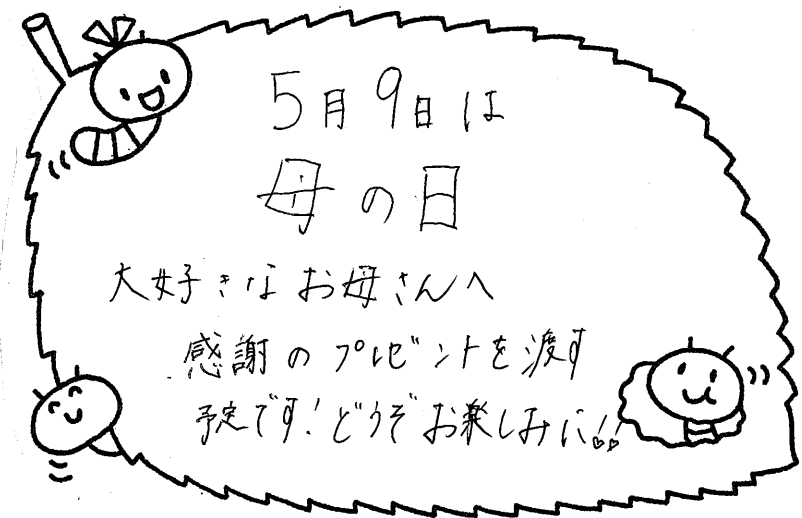 5月9日は
母の日
大好きなお母さんへ
感謝のプレゼントを渡す
予定です!どうぞお楽しみに!!